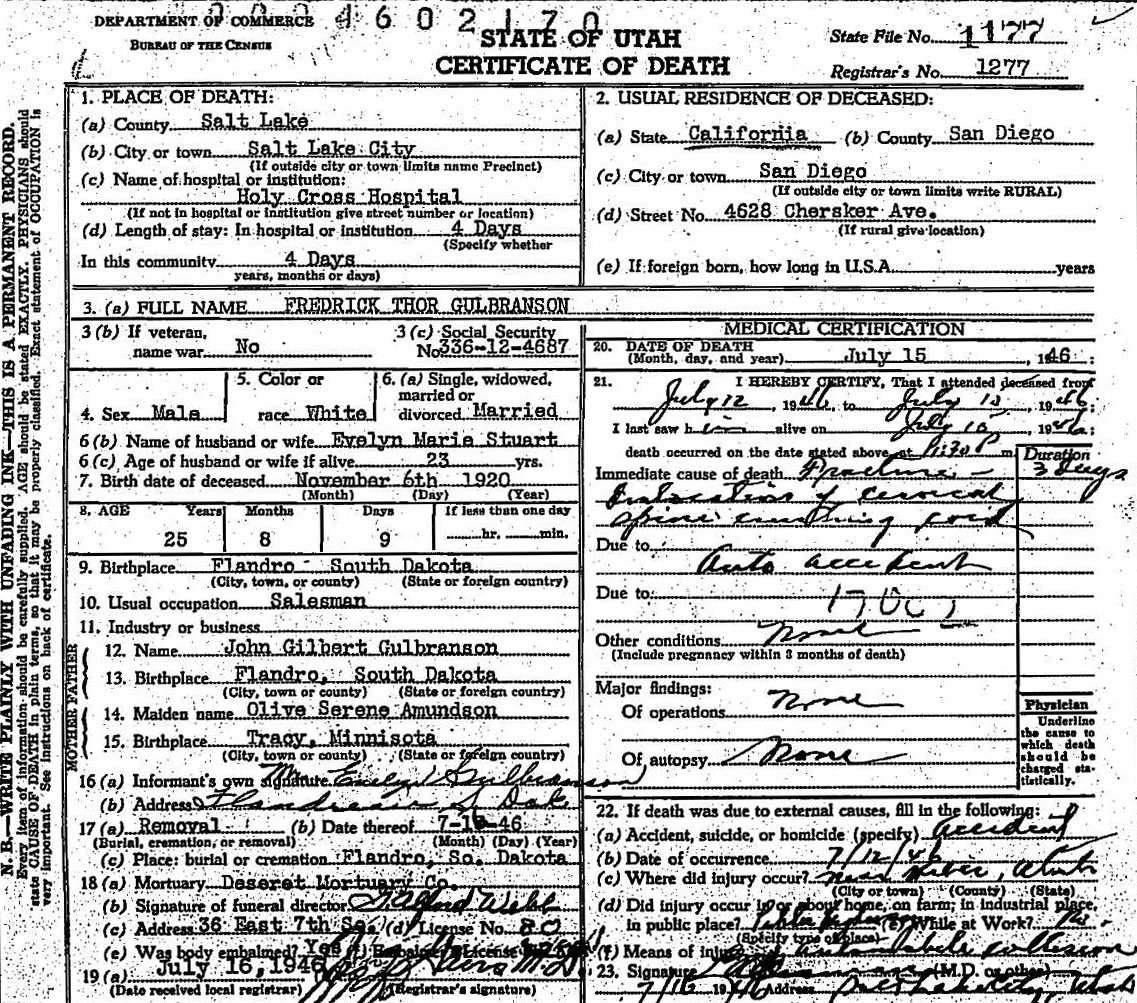 4602170
DEPARTMENT OF COMMERCE
BUREAU OF THE CENSUS
STATE OF UTAH
CERTIFICATE OF DEATH
State File No. 1177
Registrar's No. 1277
N. B.—WRITE PLAINLY WITH UNFADING INK—THIS IS A PERMANENT RECORD.
Every item of information should be carefully supplied. AGE should be stated EXACTLY. PHYSICIANS should
state CAUSE OF DEATH in plain terms, so that it may be properly classified. Exact statement of OCCUPATION is
very important. See instructions on back of certificate.
1. PLACE OF DEATH:
(a) County Salt Lake
(b) City or town Salt Lake City
(If outside city or town limits name Precinct)
(c) Name of hospital or institution:
Holy Cross Hospital
(If not in hospital or institution give street number or location)
(d) Length of stay: In hospital or institution 4 Days
(Specify whether
In this community 4 Days
years, months or days)
2. USUAL RESIDENCE OF DECEASED:
(a) State California (b) County San Diego
(c) City or town San Diego
(If outside city or town limits write RURAL)
(d) Street No. 4628 Chersker Ave.
(If rural give location)
(e) If foreign born, how long in U.S.A. years
3. (a) FULL NAME FREDRICK THOR GULBRANSON
3 (b) If veteran,
name war No
3 (c) Social Security
No. 336-12-4687
4. Sex Male
5. Color or
race White
6. (a) Single, widowed,
married or
divorced Married
6 (b) Name of husband or wife Evelyn Marie Stuart
6 (c) Age of husband or wife if alive 23 yrs.
7. Birth date of deceased November 6th 1920
(Month) (Day) (Year)
8. AGE Years Months Days If less than one day
25 8 9 hr. min.
9. Birthplace Flandro South Dakota
(City, town, or county) (State or foreign country)
10. Usual occupation Salesman
11. Industry or business
FATHER
12. Name John Gilbert Gulbranson
13. Birthplace Flandro, South Dakota
(City, town or county) (State or foreign country)
MOTHER
14. Maiden name Olive Serene Amundson
15. Birthplace Tracy, Minnisota
(City, town or county) (State or foreign country)
16 (a) Informant's own signature Mrs Evelyn Gulbranson
(b) Address Flandreau S. Dak
17 (a) Removal (b) Date thereof 7-16-46
(Burial, cremation, or removal) (Month) (Day) (Year)
(c) Place: burial or cremation Flandro, So. Dakota
18 (a) Mortuary Deseret Mortuary Co.
(b) Signature of funeral director Webb
(c) Address 36 East 7th So. (d) License No. 80
(e) Was body embalmed? Yes (f) Embalmer's License
19 (a) July 16, 1946
(Date received local registrar) (Registrar's signature)
MEDICAL CERTIFICATION
20. DATE OF DEATH
(Month, day, and year) July 15, 1946:
21. I HEREBY CERTIFY, That I attended deceased from
July 12 1946, to July 15 1946:
I last saw him alive on July 15 1946:
death occurred on the date stated above at P m.
Duration
Immediate cause of death Fracture — 3 days
dislocation of cervical
spine crushing cord
Due to: Auto accident
Due to:
Other conditions None
(Include pregnancy within 3 months of death)
Major findings:
Of operations None
Of autopsy None
Physician
Underline
the cause to
which death
should be
charged sta-
tistically.
22. If death was due to external causes, fill in the following:
(a) Accident, suicide, or homicide (specify) accident
(b) Date of occurrence 7/12/46
(c) Where did injury occur? near Heber, Utah
(City or town) (County) (State)
(d) Did injury occur in or about home, on farm, in industrial place,
in public place? (e) While at Work? No.
(Specify type of place)
(f) Means of injury Automobile collision
23. Signature (M.D. or other)
7/16 1946 Address Salt Lake City Utah